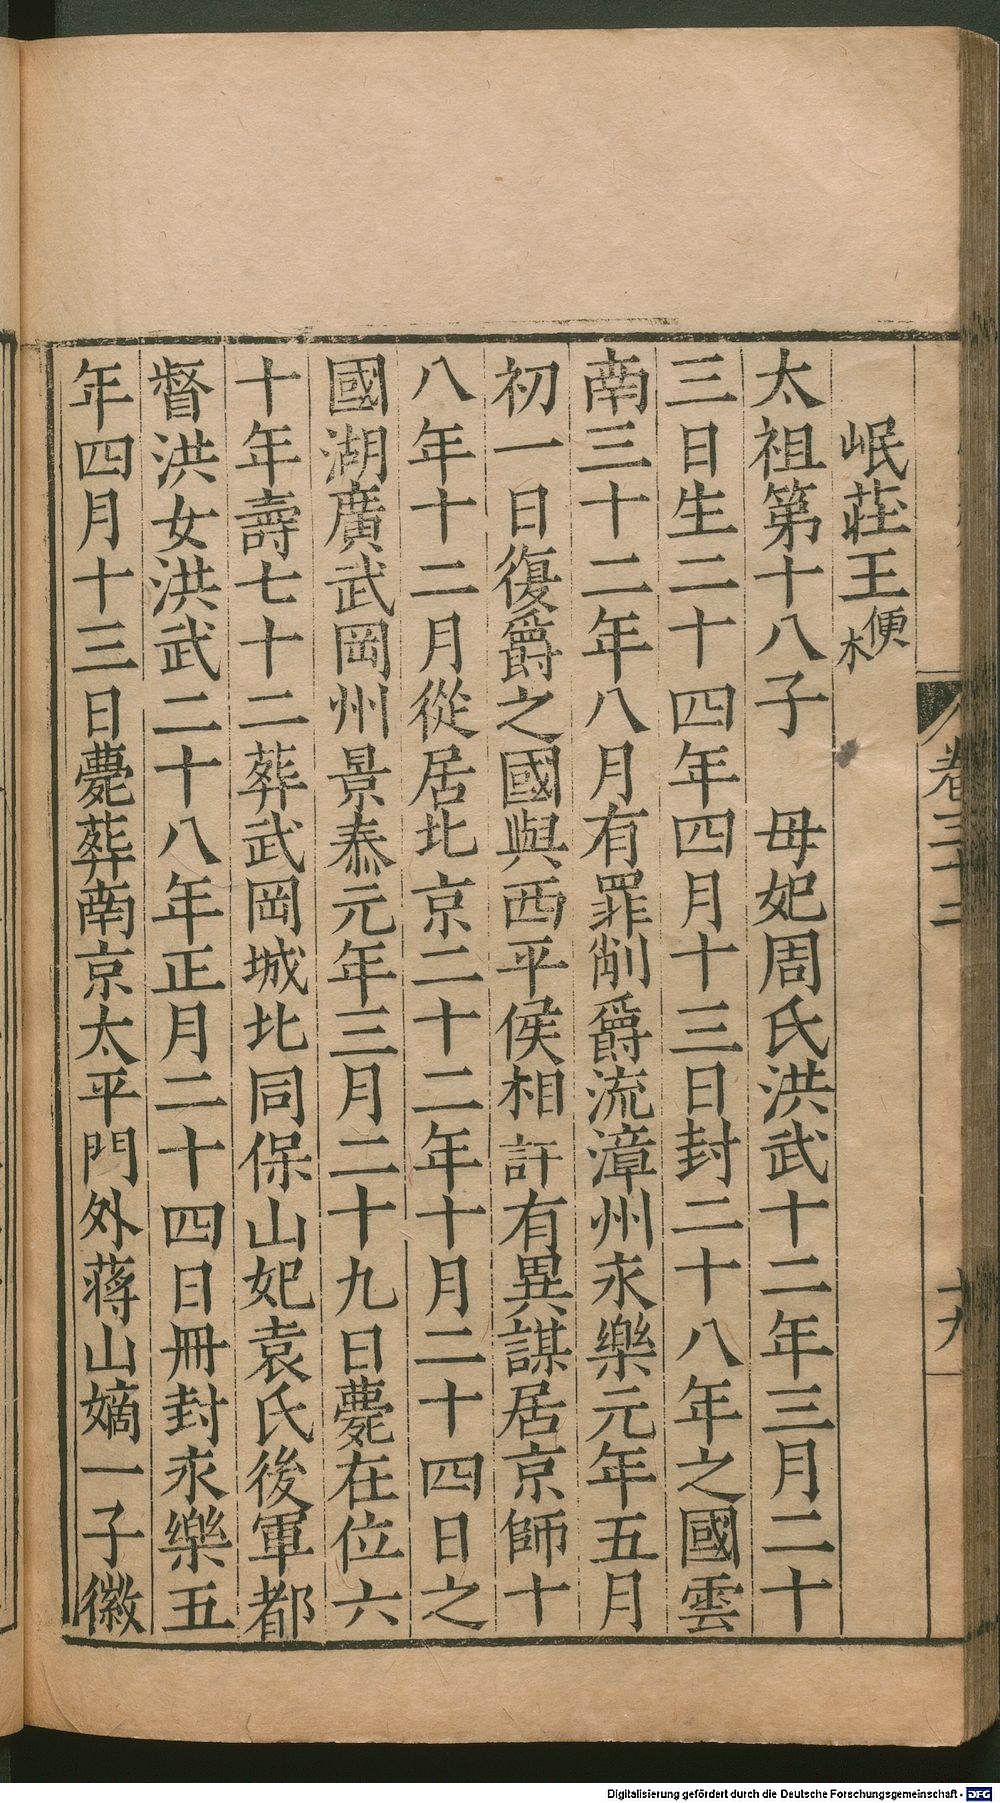 岷莊王楩
太祖第十八子　母妃周氏洪武十二年三月二十
三日生二十四年四月十三日封二十八年之國雲
南三十二年八月有罪削爵流漳州永樂元年五月
初一日復爵之國與西平侯相訐有異謀居京師十
八年十二月從居北京二十二年十月二十四日之
國湖廣武岡州景泰元年三月二十九日薨在位六
十年壽七十二葬武岡城北同保山妃袁氏後軍都
督洪女洪武二十八年正月二十四日冊封永樂五
年四月十三日薨葬南京太平門外蔣山嫡一子徽
卷三十二
十九
Digitalisierung gefördert durch die Deutsche Forschungsgemeinschaft - DFG